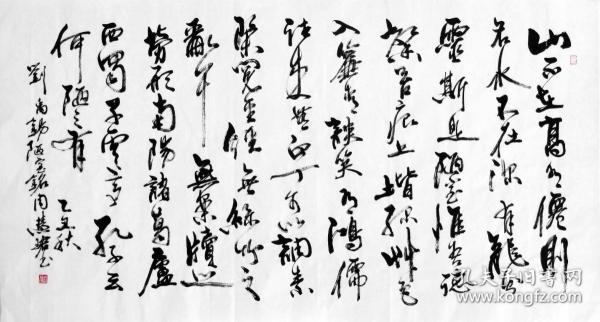 山不在高有僊則
名水不在深有龍則
靈斯是陋室惟吾德
馨苔痕上堦綠草色
入簾青談笑有鴻儒
往来無白丁可以調素
琴閱金經無絲竹之
亂耳無案牘之
勞形南陽諸葛廬
西蜀子雲亭孔子云
何陋之有 乙亥秋
劉禹錫陋室銘周慧珺書
孔夫子旧书网
www.kongfz.com